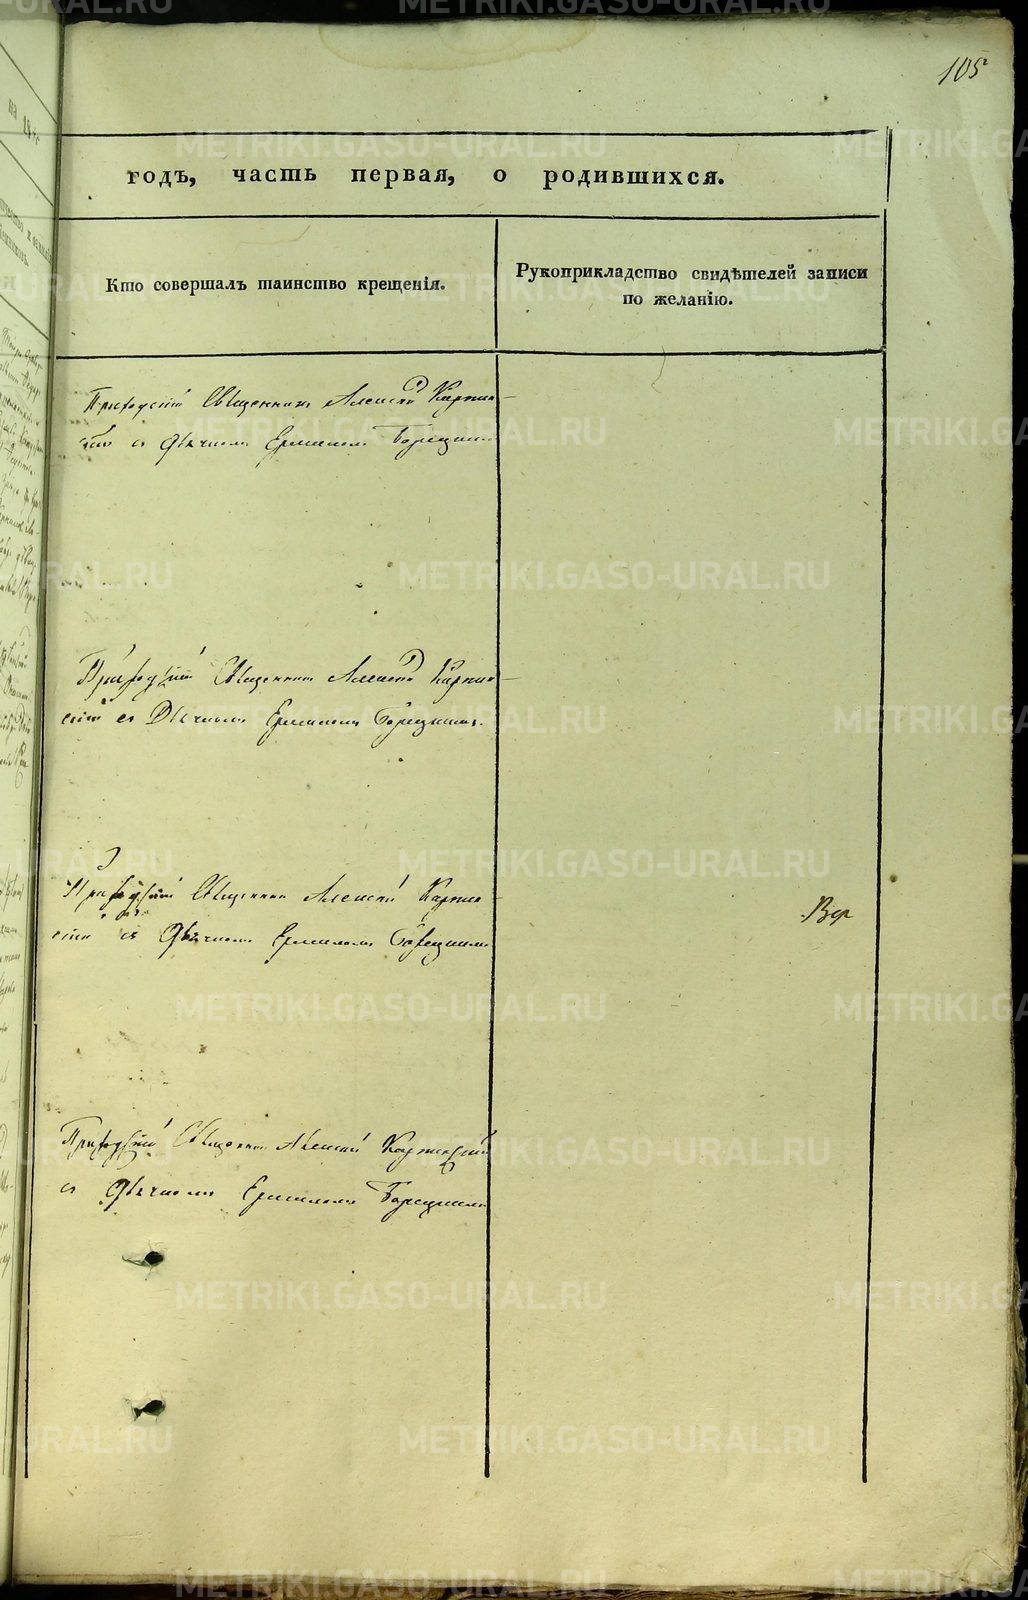 105
годъ, часть первая, о родившихся.
Кто совершалъ таинство крещенія.
Рукоприкладство свидѣтелей записи
по желанію.
Приходскій Священникъ Алексій Карпин-
скій съ Дьячкомъ Ермиломъ Борецкимъ
Приходскій Священникъ Алексій Карпин-
скій съ Дьячкомъ Ермиломъ Борецкимъ.
Приходскій Священникъ Алексій Карпин-
скій съ Дьячкомъ Ермиломъ Борецкимъ
Приходскій Священникъ Алексій Карпинскій
съ Дьячкомъ Ермиломъ Борецкимъ
METRIKI.GASO-URAL.RU